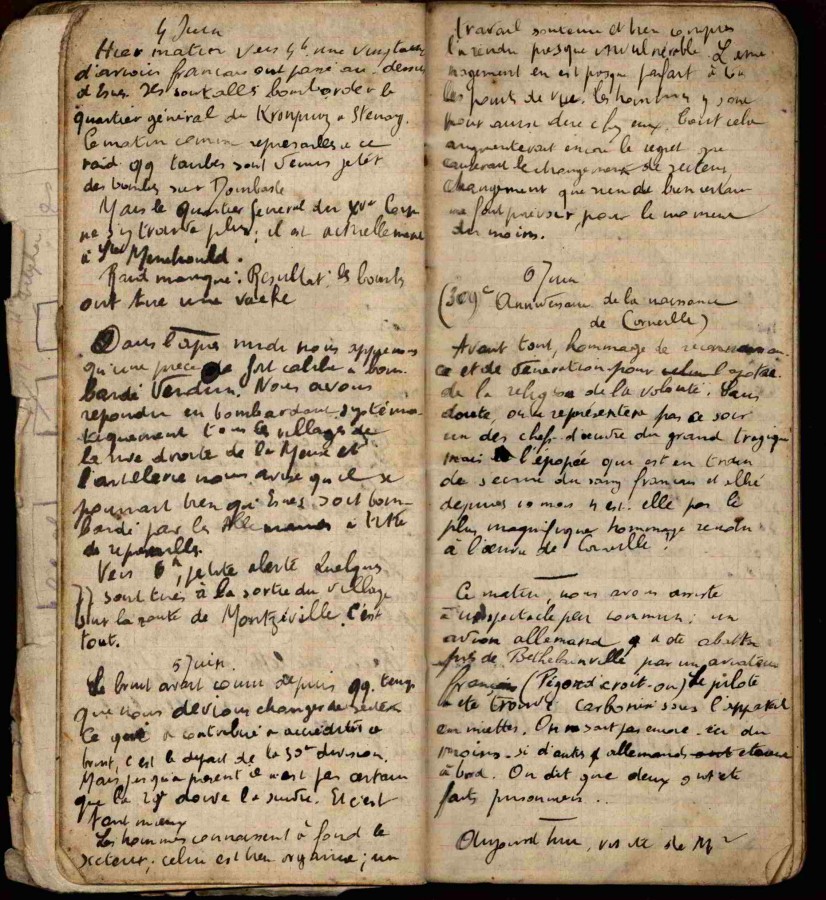 4 Juin
Hier matin vers 4h une vingtaine
d'avions français ont passé au-dessus
d'Esnes. Ils sont allés bombarder le
quartier général du Kronprinz à Stenay.
Ce matin comme représailles à ce
raid qq taubes sont venus jeter
des bombes sur Dombasle
Mais le quartier général du XVe Corps
ne s'y trouve plus ; il est actuellement
à Ste Menehould.
Raid manqué. Résultat : les bombes
ont tué une vache
Dans l'après midi nous apprenons
qu'une pièce de fort calibre a bom-
bardé Verdun. Nous avons
répondu en bombardant systéma-
tiquement tous les villages de
la rive droite de la Meuse et
l'artillerie nous avise qu'il se
pourrait bien qu'Esnes soit bom-
bardé par les Allemands à titre
de représailles.
Vers 6h, petite alerte Quelques
77 sont tirés à la sortie du village
sur la route de Montzéville. C'est
tout.
5 Juin.
Le bruit avait couru depuis qq. temps
que nous devions changer de secteur
Ce qui a contribué à accréditer ce
bruit, c'est le départ de la 30e division.
Mais jusqu'à présent ce n'est pas certain
que la 29e doive la suivre. Et c'est
tant mieux
Les hommes connaissent à fond le
secteur ; celui est bien organisé ; un
travail soutenu et bien compris
l'a rendu presque invulnérable. L'amé-
nagement en est presque parfait à tous
les points de vue. Les hommes y sont
pour ainsi dire chez eux. Tout cela
augmenterait encore le regret que
causerait le changement de secteur,
changement que rien de bien certain
ne fait prévoir, pour le moment
du moins.
6 Juin
(309e Anniversaire de la naissance
de Corneille)
Avant tout, hommage de reconnaissan-
ce et de vénération pour l'apôtre
de la religion de la volonté. Sans
doute, on ne représentera pas ce soir
un des chefs-d'œuvre du grand tragique
mais l'épopée qui est en train
de s'écrire du sang français et allié
depuis 10 mois n'est-elle pas le
plus magnifique hommage rendu
à l'œuvre de Corneille !
Ce matin, nous avons assisté
à un spectacle peu commun : un
avion allemand a été abattu
près de Béthelainville par un aviateur
français (Pégoud croit-on) Le pilote
a été trouvé carbonisé sous l'appareil
en miettes. On ne sait pas encore - ici du
moins - si d'autres allemands étaient
à bord. On dit que deux ont été
faits prisonniers..
Aujourd'hui, visite de Mr